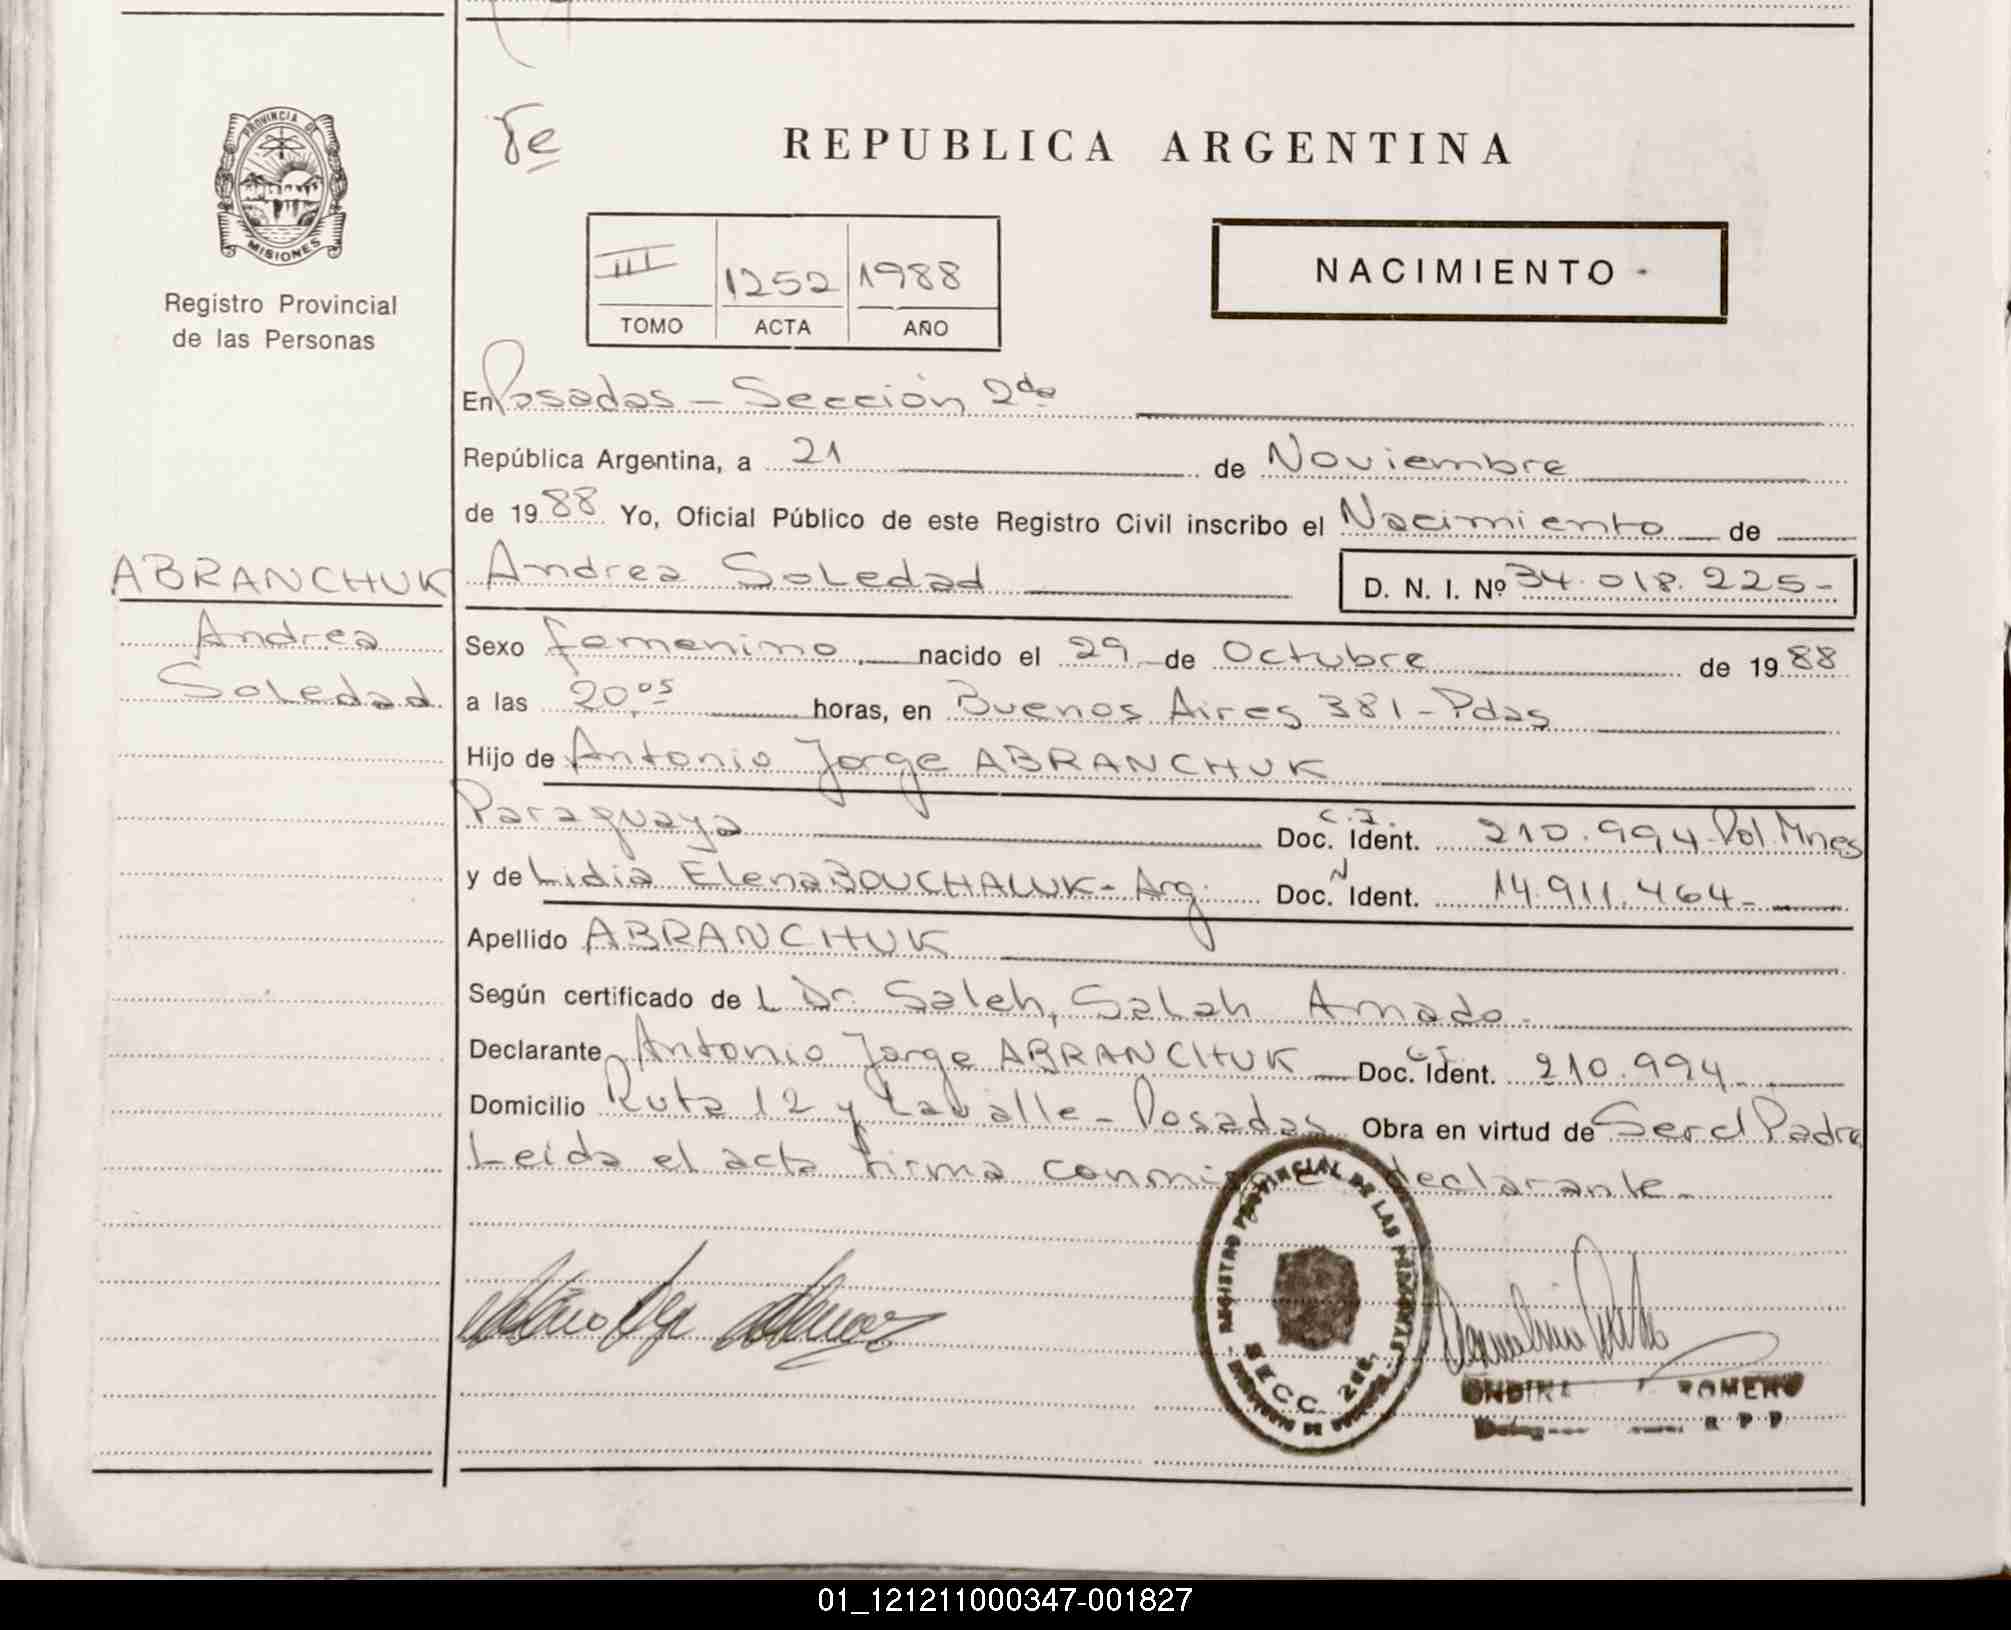 PROVINCIA DE
MISIONES
Registro Provincial
de las Personas
ABRANCHUK
Andrea
Soledad
REPUBLICA ARGENTINA
III 1252 1988
TOMO ACTA AÑO
NACIMIENTO
En Posadas - Sección 2da
República Argentina, a 21 de Noviembre
de 1988 Yo, Oficial Público de este Registro Civil inscribo el Nacimiento de
Andrea Soledad D. N. I. Nº 34.018.225-
Sexo femenino nacido el 29 de Octubre de 1988
a las 20,05 horas, en Buenos Aires 381-Pdas
Hijo de Antonio Jorge ABRANCHUK
Paraguaya C.I. Doc. Ident. 210.994 Pol. Mnes
y de Lidia Elena BOUCHALUK - Arg. Doc. N Ident. 14.911.464-
Apellido ABRANCHUK
Según certificado de L Dr. Saleh, Salah Amado.
Declarante Antonio Jorge ABRANCHUK Doc. C.I. Ident. 210.994
Domicilio Ruta 12 y Lavalle - Posadas Obra en virtud de Ser el Padre
Leída el acta firma conmigo declarante.
REGISTRO PROVINCIAL DE LAS PERSONAS
SECC. 2da.
ROMERO
R P P
01_121211000347-001827